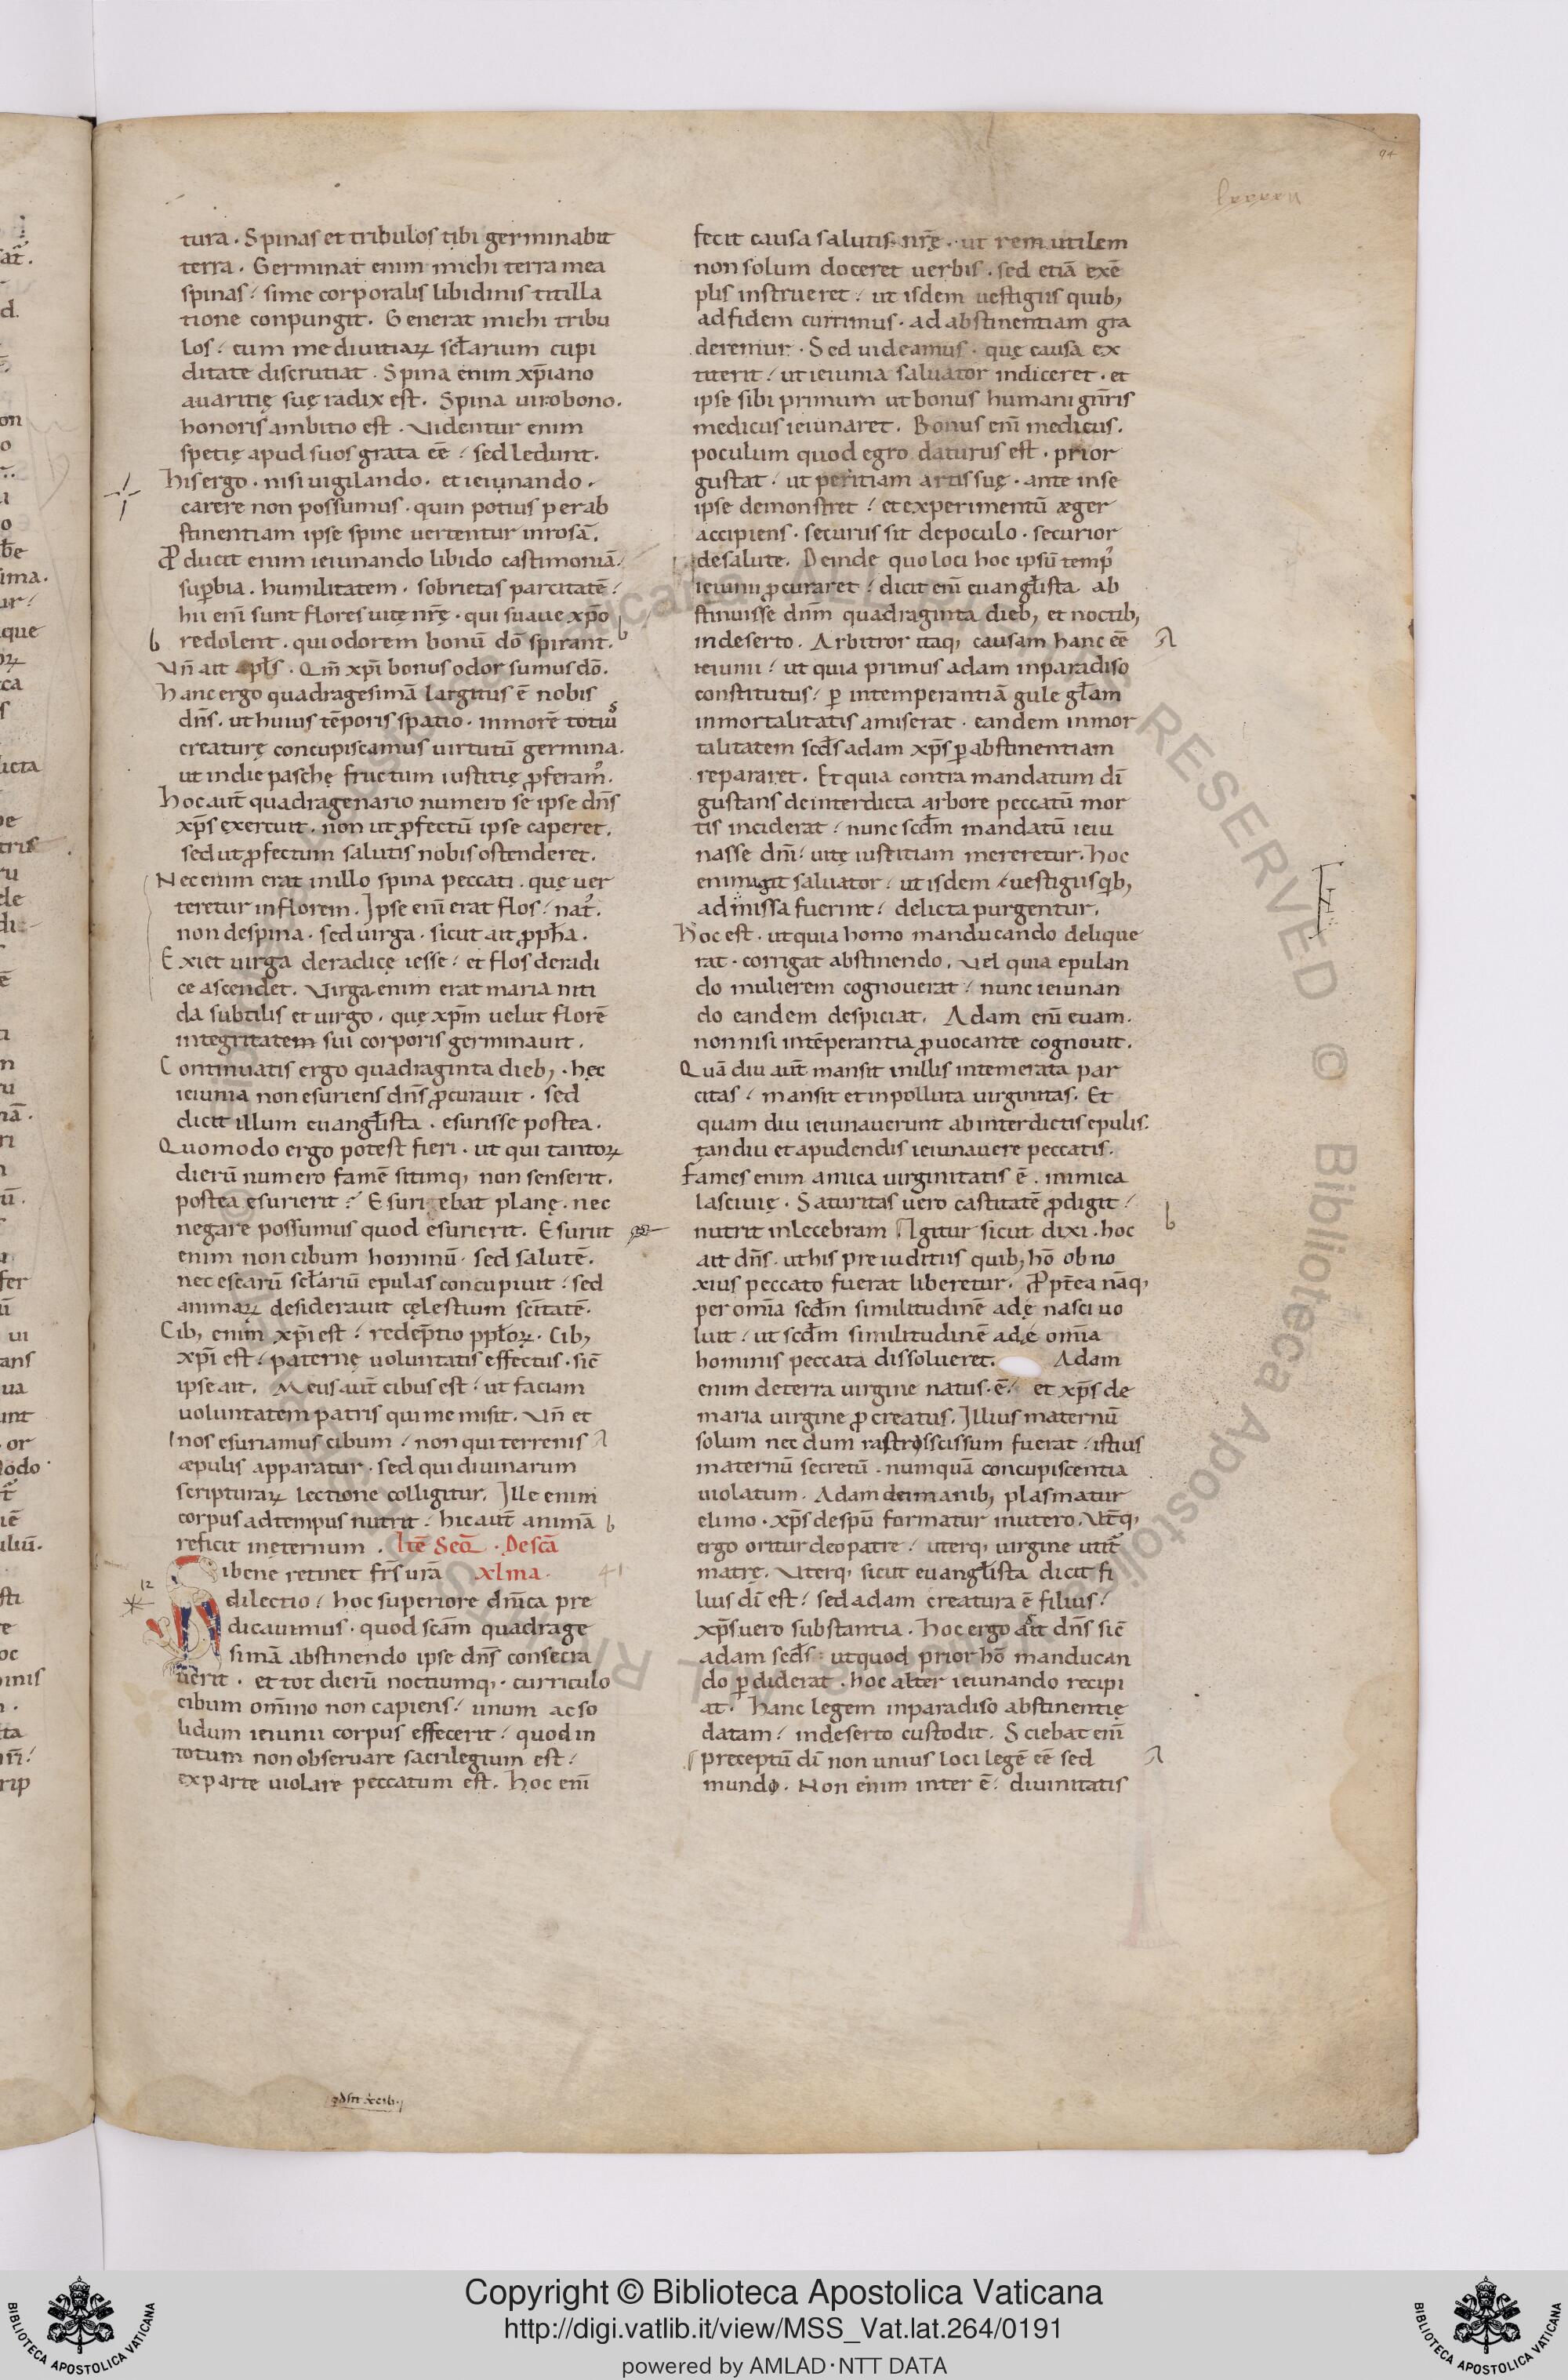 94
tura. Spinas et tribulos tibi germinabit
terra. Germinat enim michi terra mea
spinas / si me corporalis libidinis titilla
tione conpungit. Generat michi tribu
los / cum me diuitiaꝝ scl̄arium cupi
ditate discrutiat. Spina enim xp̄iano
auaritię suę radix est. Spina uiro bono.
honoris ambitio est. Videntur enim
spetię apud suos grata eē / sed ledunt.
His ergo. nisi uigilando. et ieiunando.
carere non possumus. quin potius per ab
stinentiam ipse spine uertentur in rosā.
Ꝓducit enim ieiunando libido castimoniā.
suꝑbia. humilitatem. sobrietas parcitatē /
hii enī sunt flores uitę nr̄ę. qui suaue xp̄o
redolent. qui odorem bonū dō spirant.
Vn̄ ait apl̄s. Qm̄ xp̄i bonus odor sumus dō.
Hanc ergo quadragesimā largitus ē nobis
dn̄s. ut huius tēporis spatio. in morē totius
creaturę concupiscamus uirtutū germina.
ut in die paschę fructum iustitię ꝓferam᾽.
Hoc aut̄ quadragenario numero se ipse dn̄s
xp̄s exercuit. non ut ꝓfectū ipse caperet.
sed ut ꝓfectum salutis nobis ostenderet.
Nec enim erat in illo spina peccati. quę uer
teretur in florem. Ipse enī erat flos / nat᾽.
non de spina. sed uirga. sicut ait ꝓph̄a.
Exiet uirga de radicę iesse / et flos de radi
ce ascendet. Virga enim erat maria niti
da subtilis et uirgo. quę xp̄m uelut florē
integritatem sui corporis germinauit.
Continuatis ergo quadraginta dieb; . hęc
ieiunia non esuriens dn̄s ꝓcurauit. sed
dicit illum euangl̄ista. esurisse postea.
Quomodo ergo potest fieri. ut qui tantoꝝ
dierū numero famē sitimq; non senserit.
postea esurierit? Esuriebat planę. nec
negare possumus quod esurierit. Esuriit
enim non cibum hominū. sed salutē.
nec escarū scl̄ariū epulas concupiuit / sed
animaꝝ desiderauit cęlestium scīt̄atē.
Cib; enim xp̄i est / redēptio ppl̄oꝝ. Cib;
xp̄i est / paternę uoluntatis effectus. sic̄
ipse ait. Meus aut̄ cibus est / ut faciam
uoluntatem patris qui me misit. Vn̄ et
nos esuriamus cibum / non qui terrenis
æpulis apparatur. sed qui diuinarum
scripturaꝝ lectione colligitur. Ille enim
corpus ad tempus nutrit / hic aut̄ animā
reficit in ęternum. Itē Sec̄d. De sc̄a
Si bene retinet fr̄s ur̄a xlma.
dilectio / hoc superiore dn̄ica pre
dicauimus. quod sc̄am quadrage
simā abstinendo ipse dn̄s consecra
uerit. et tot dierū noctiumq; . curriculo
cibum om̄ino non capiens / unum ac so
lidum ieiunii corpus effecerit / quod in
totum non obseruare sacrilegium est /
ex parte uiolare peccatum est. Hoc enī
fecit causa salutis nr̄ę. ut rem utilem
non solum doceret uerbis. sed etiā exē
plis instrueret / ut isdem uestigiis quib;
ad fidem currimus. ad abstinentiam gra
deremur. Sed uideamus. quę causa ex
titerit / ut ieiunia saluator indiceret. et
ipse sibi primum ut bonus humani gn̄ris
medicus ieiunaret. Bonus enī medicus.
poculum quod egro daturus est. prior
gustat / ut peritiam artis suę. ante in se
ipse demonstret / et experimentū æger
accipiens. securus sit de poculo. securior
de salute. Deinde quo loci hoc ipsū temp᾽
ieiunii ꝓcuraret / dicit enī euangl̄ista ab
stinuisse dn̄m quadraginta dieb; et noctib;
in deserto. Arbitror itaq; causam hanc eē
ieiunii / ut quia primus adam in paradiso
constitutus / ꝑ intemperantiā gule gl̄am
inmortalitatis amiserat. eandem inmor
talitatem scd̄s adam xp̄s ꝑ abstinentiam
repararet. Et quia contra mandatum dī
gustans de interdicta arbore peccatū mor
tis inciderat / nunc scd̄m mandatū ieiu
nasse dn̄i / uitę iustitiam mereretur. Hoc
enim agit saluator / ut isdem uestigiis qib;
admissa fuerint / delicta purgentur.
Hoc est. ut quia homo manducando delique
rat. corrigat abstinendo. Vel quia epulan
do mulierem cognouerat / nunc ieiunan
do eandem despiciat. Adam enī euam.
non nisi intēperantia ꝓuocante cognouit.
Quā diu aut̄ mansit in illis intemerata par
citas / mansit et inpolluta uirginitas. Et
quam diu ieiunauerunt ab interdictis epulis.
tandiu et a pudendis ieiunauere peccatis.
Fames enim amica uirginitatis ē. inimica
lasciuię. Saturitas uero castitatē ꝓdigit /
nutrit inlecebram. Igitur sicut dixi. hoc
ait dn̄s. ut his preiuditiis quib; hō obno
xius peccato fuerat liberetur. Ꝓpt̄ea nāq;
per om̄ia scd̄m similitudinē adę nasci uo
luit / ut scd̄m similitudinē adę om̄ia
hominis peccata dissolueret. Adam
enim de terra uirgine natus. ē / et xp̄s de
maria uirgine ꝓcreatus. Illius maternū
solum nec dum rastris scissum fuerat / istius
maternū secretū. numquā concupiscentia
uiolatum. Adam dei manib; plasmatur
e limo. xp̄s de spū formatur in utero. Vt̄q;
ergo oritur deo patre / uterq; virgine utit᾽
matrę. Vterq; sicut euangl̄ista dicit fi
lius dī est / sed adam creatura ē filius /
xp̄s uero substantia. Hoc ergo ait dn̄s sic̄
adam scd̄s / ut quod prior hō manducan
do ꝑdiderat. hoc alter ieiunando recipi
at. Hanc legem in paradiso abstinentię
datam / in deserto custodit. Sciebat enī
preceptū dī non unius loci legē eē sed
mundo. Non enim inter ē / diuinitatis
Copyright © Biblioteca Apostolica Vaticana
http://digi.vatlib.it/view/MSS_Vat.lat.264/0191
powered by AMLAD·NTT DATA
BIBLIOTECA APOSTOLICA VATICANA
BIBLIOTECA APOSTOLICA VATICANA